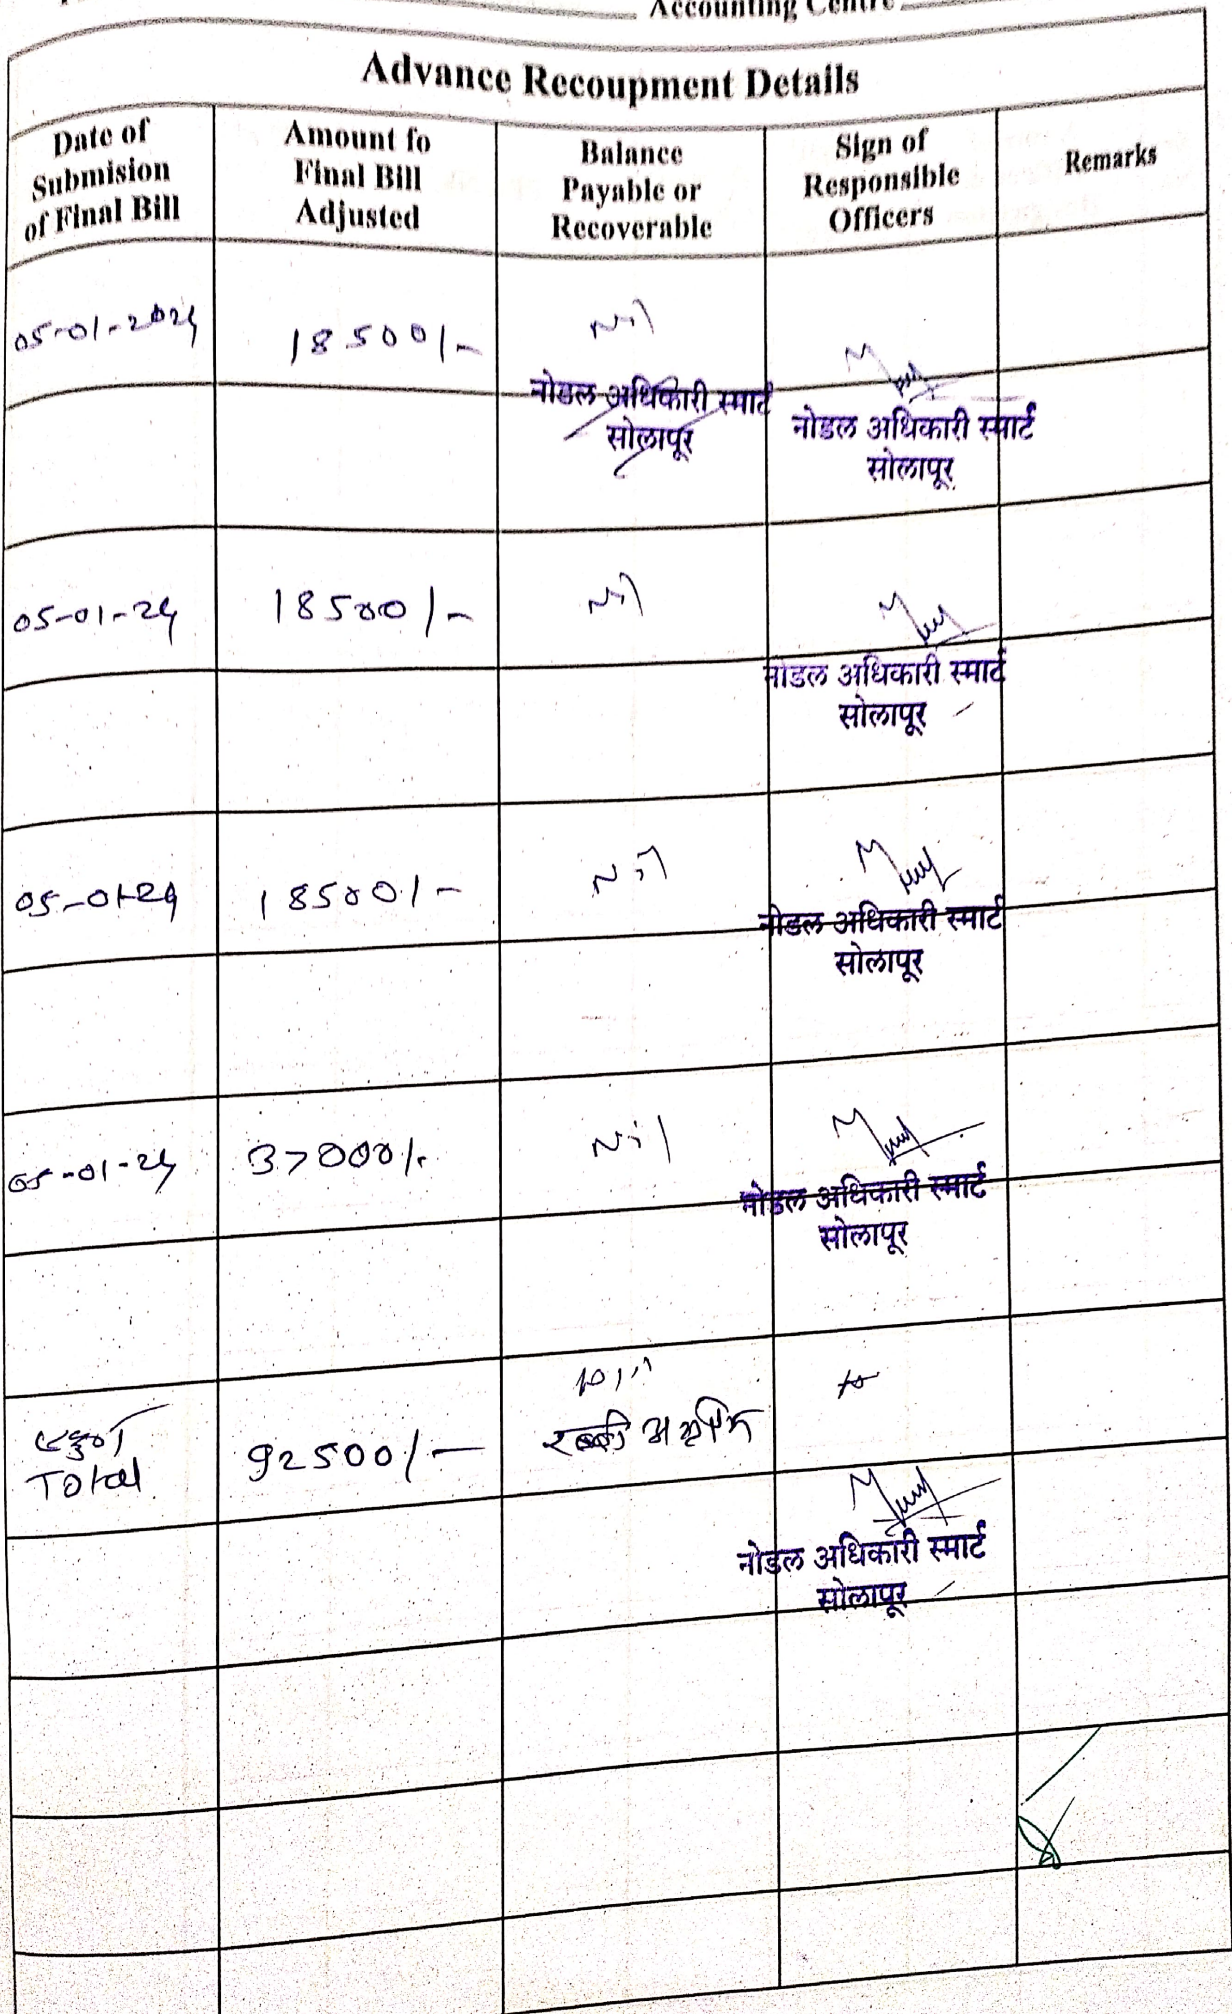 Accounting Centre
Advance Recoupment Details
Date of
Submision
of Final Bill
Amount fo
Final Bill
Adjusted
Balance
Payable or
Recoverable
Sign of
Responsible
Officers
Remarks
05-01-2024
18500/-
Nil
नोडल अधिकारी स्मार्ट
सोलापूर
नोडल अधिकारी स्मार्ट
सोलापूर
05-01-24
18500/-
Nil
नोडल अधिकारी स्मार्ट
सोलापूर
05-01-24
18500/-
Nil
नोडल अधिकारी स्मार्ट
सोलापूर
05-01-24
37000/-
Nil
नोडल अधिकारी स्मार्ट
सोलापूर
Total
92500/-
नोडल अधिकारी स्मार्ट
सोलापूर